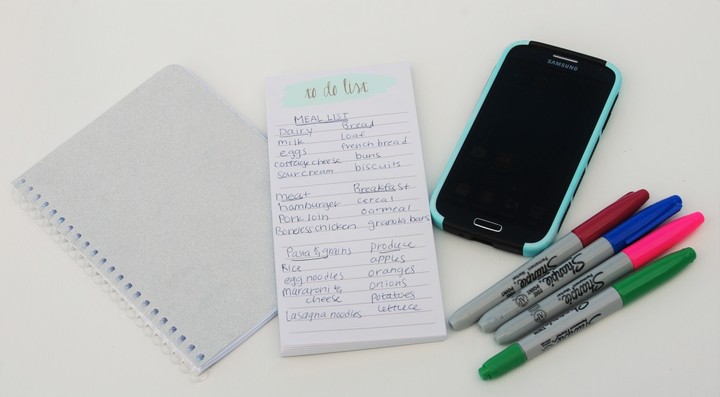 to do list
MEAL LIST
Dairy Bread
milk Loaf
eggs french bread
cottage cheese buns
sour cream biscuits
meat Breakfast
hamburger cereal
Pork loin oatmeal
Boneless chicken granola bars
Pasta & grains produce
Rice apples
egg noodles oranges
Mararoni & onions
cheese Potatoes
Lasagna noodles lettuce
SAMSUNG
Sharpie
Sharpie
Sharpie
Sharpie